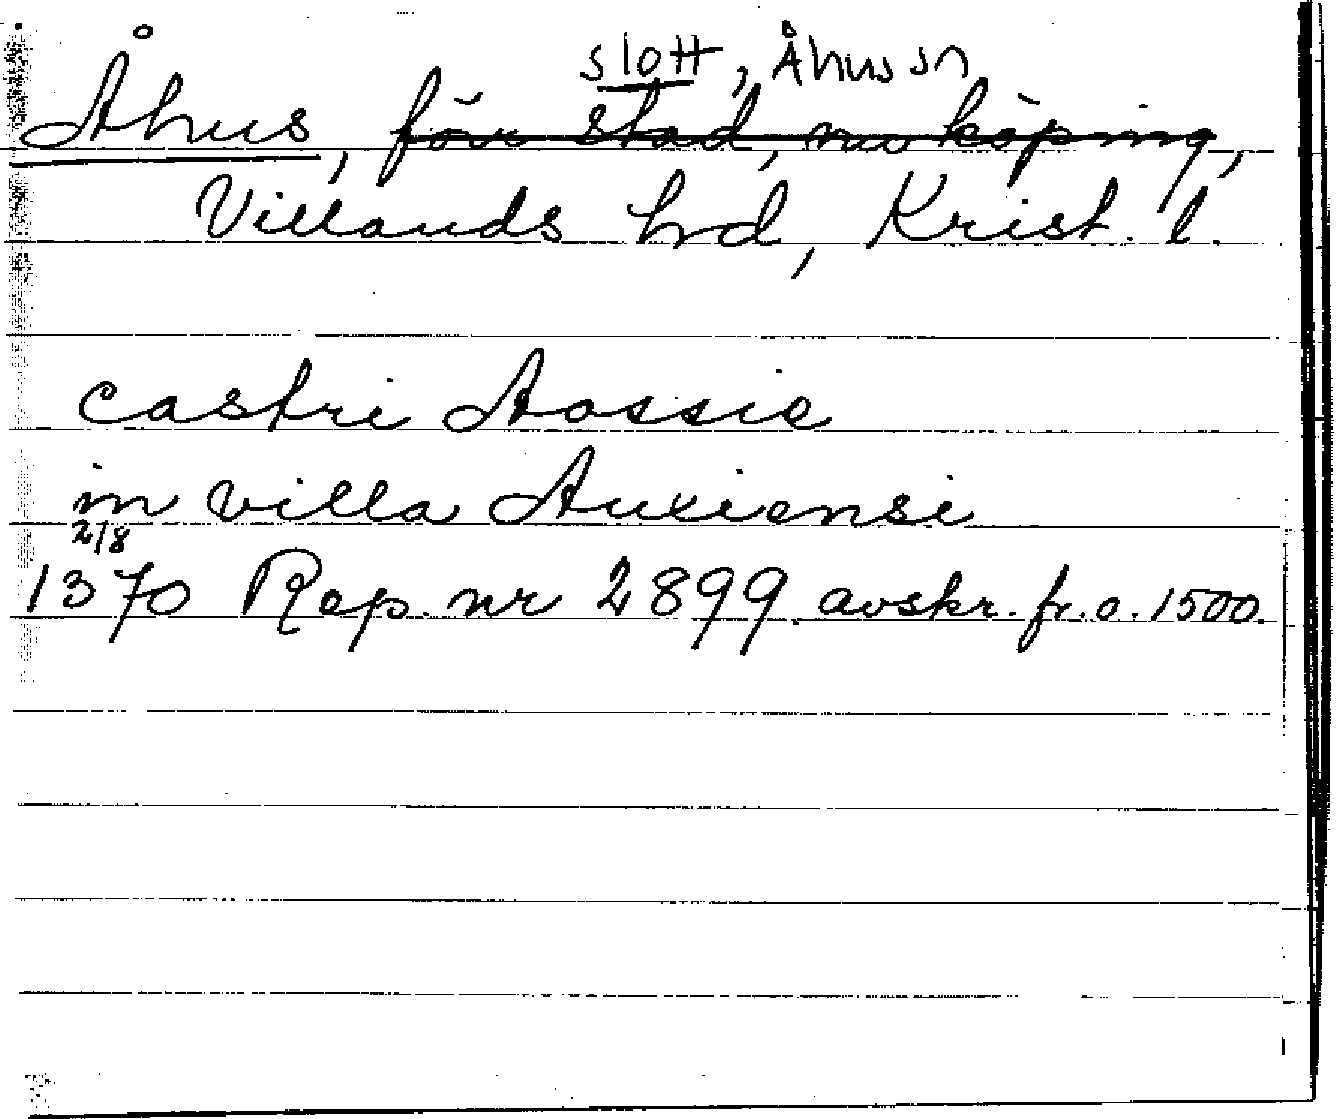 slott, Åhus sn
Åhus, förr stad, nu köping,
Villands hd, Krist. l.
castri Aossie
in villa Auxiensi
2/8
1370 Rep. nr 2899 avskr. fr. o. 1500.